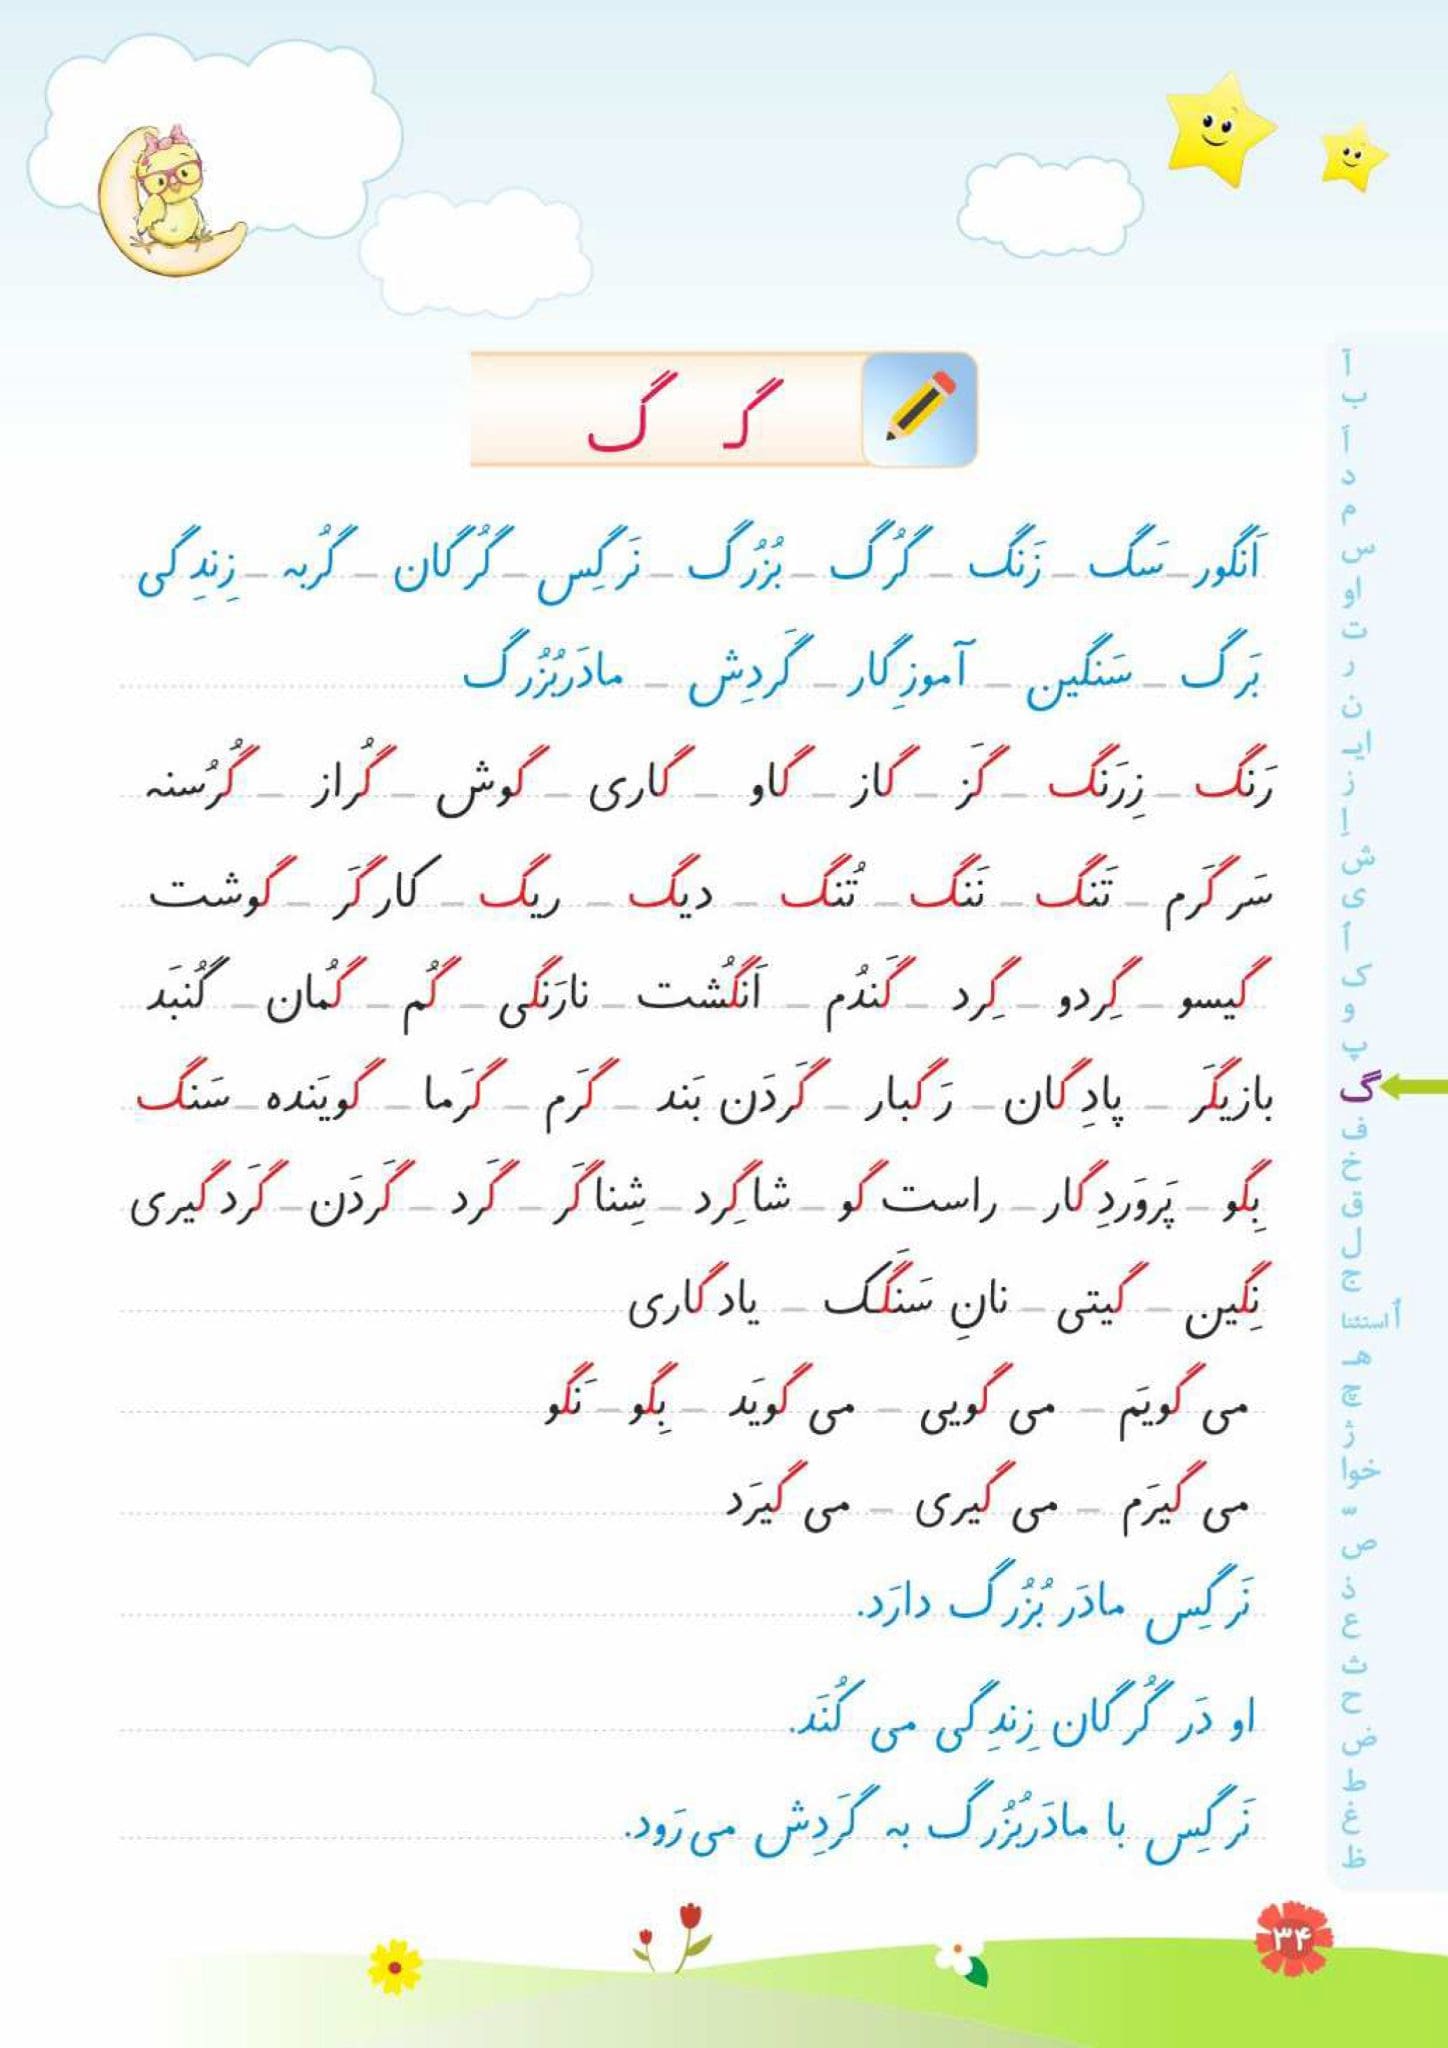 گـ گ
اَنگور _ سَگ _ زَنگ _ گُرگ _ بُزُرگ _ نَرگِس _ گُرگان _ گُربه _ زِندِگی
بَرگ _ سَنگین _ آموزِگار _ گَردِش _ مادَربُزُرگ
رَنگ _ زِرَنگ _ گَز _ گاز _ گاو _ گاری _ گوش _ گُراز _ گُرُسنه
سَرگَرم _ تَنگ _ نَنگ _ تُنگ _ دیگ _ ریگ _ کارگَر _ گوشت
گیسو _ گِردو _ گِرد _ گَندُم _ اَنگُشت _ نارَنگی _ گُم _ گُمان _ گُنبَد
بازیگَر _ پادِگان _ رَگبار _ گَردَن بَند _ گَرم _ گَرما _ گویَنده _ سَنگ
بِگو _ پَروَردِگار _ راست گو _ شاگِرد _ شِناگَر _ گَرد _ گَردَن _ گَردگیری
نِگین _ گیتی _ نانِ سَنگَک _ یادگاری
می گویَم _ می گویی _ می گویَد _ بِگو _ نَگو
می گیرَم _ می گیری _ می گیرَد
نَرگِس مادَر بُزُرگ دارَد.
او دَر گُرگان زِندِگی می کُنَد.
نَرگِس با مادَربُزُرگ به گَردِش می‌رَود.
آ
ب
اَ
د
م
س
او
ت
ر
ن
ایـ
ز
اِ
ش
ی
اُ
ک
و
پ
گ
ف
خ
ق
ل
ج
اُ استثنا
هـ
چ
ژ
خوا
ّ
ص
ذ
ع
ث
ح
ض
ط
غ
ظ
۳۴